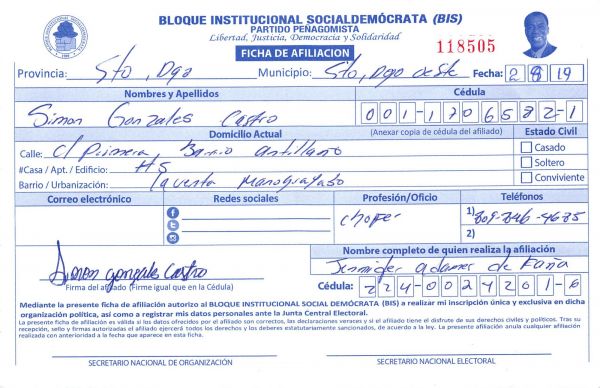 BLOQUE INSTITUCIONAL SOCIALDEMÓCRATA (BIS)
PARTIDO PEÑAGOMISTA
Libertad, Justicia, Democracia y Solidaridad
FICHA DE AFILIACION
118505
Provincia: Sto, Dgo Municipio: Sto, Dgo oeste Fecha: 2 8 19
Nombres y Apellidos Cédula
Simon Gonzales Castro 001-1706582-1
Domicilio Actual (Anexar copia de cédula del afiliado) Estado Civil
Calle: c/ Primera, Barrio antillano Casado
#Casa / Apt. / Edificio: #5 Soltero
Barrio / Urbanización: la venta Manoguayabo Conviviente
Correo electrónico Redes sociales Profesión/Oficio Teléfonos
chofer 1) 809-846-4685
2)
Nombre completo de quien realiza la afiliación
Simon gonzales Castro Jennifer adames de
Firma del afiliado (Firme igual que en la Cédula) Cédula: 224-0024201-6
Mediante la presente ficha de afiliación autorizo al BLOQUE INSTITUCIONAL SOCIAL DEMÓCRATA (BIS) a realizar mi inscripción única y exclusiva en dicha
organización política, así como a registrar mis datos personales ante la Junta Central Electoral.
La presente ficha de afiliación es válida si los datos ofrecidos por el afiliado son correctos, las declaraciones veraces y si el afiliado tiene el disfrute de sus derechos civiles y políticos. Tras su
recepción, sello y firmas autorizadas el afiliado ejercerá todos los derechos y los deberes estatutariamente sancionados, de acuerdo a la ley. La presente afiliación anula cualquier afiliación
realizada con anterioridad a la fecha que aparece en esta ficha.
SECRETARIO NACIONAL DE ORGANIZACIÓN SECRETARIO NACIONAL ELECTORAL